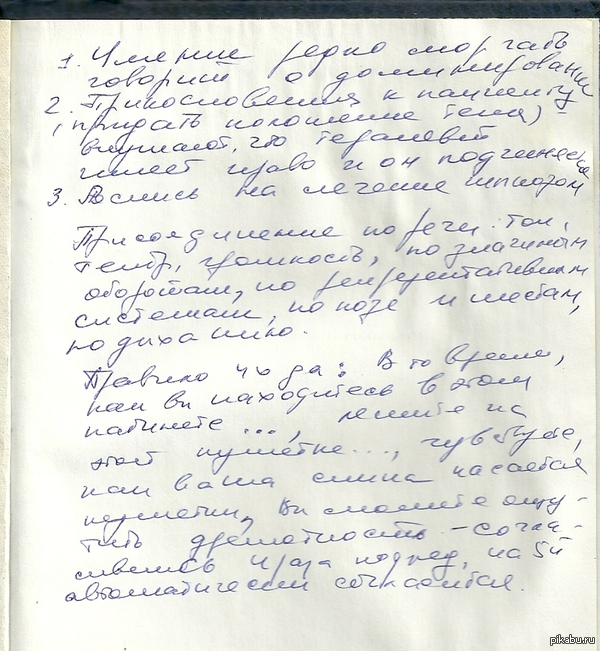 1. Умение редко моргать
говорит о доминировании
2. Прикосновения к пациенту
(придать положение тела) -
внушают, что терапевт
имеет право и он подчиняется
3. Ярлык на лечение гипнозом
Присоединение по речи: тон,
тембр, громкость, по значимым
оборотам, по репрезентативным
системам, по позе и жестам,
по дыханию.
Правило 4х да: В то время,
как вы находитесь в этом
кабинете ..., лежите на
этой кушетке..., чувствуете,
как ваша спина касается
кушетки, Вы сможете ощу-
тить дремотность - согла-
сившись 4 раза подряд, на 5й
автоматически соглашается.
pikabu.ru